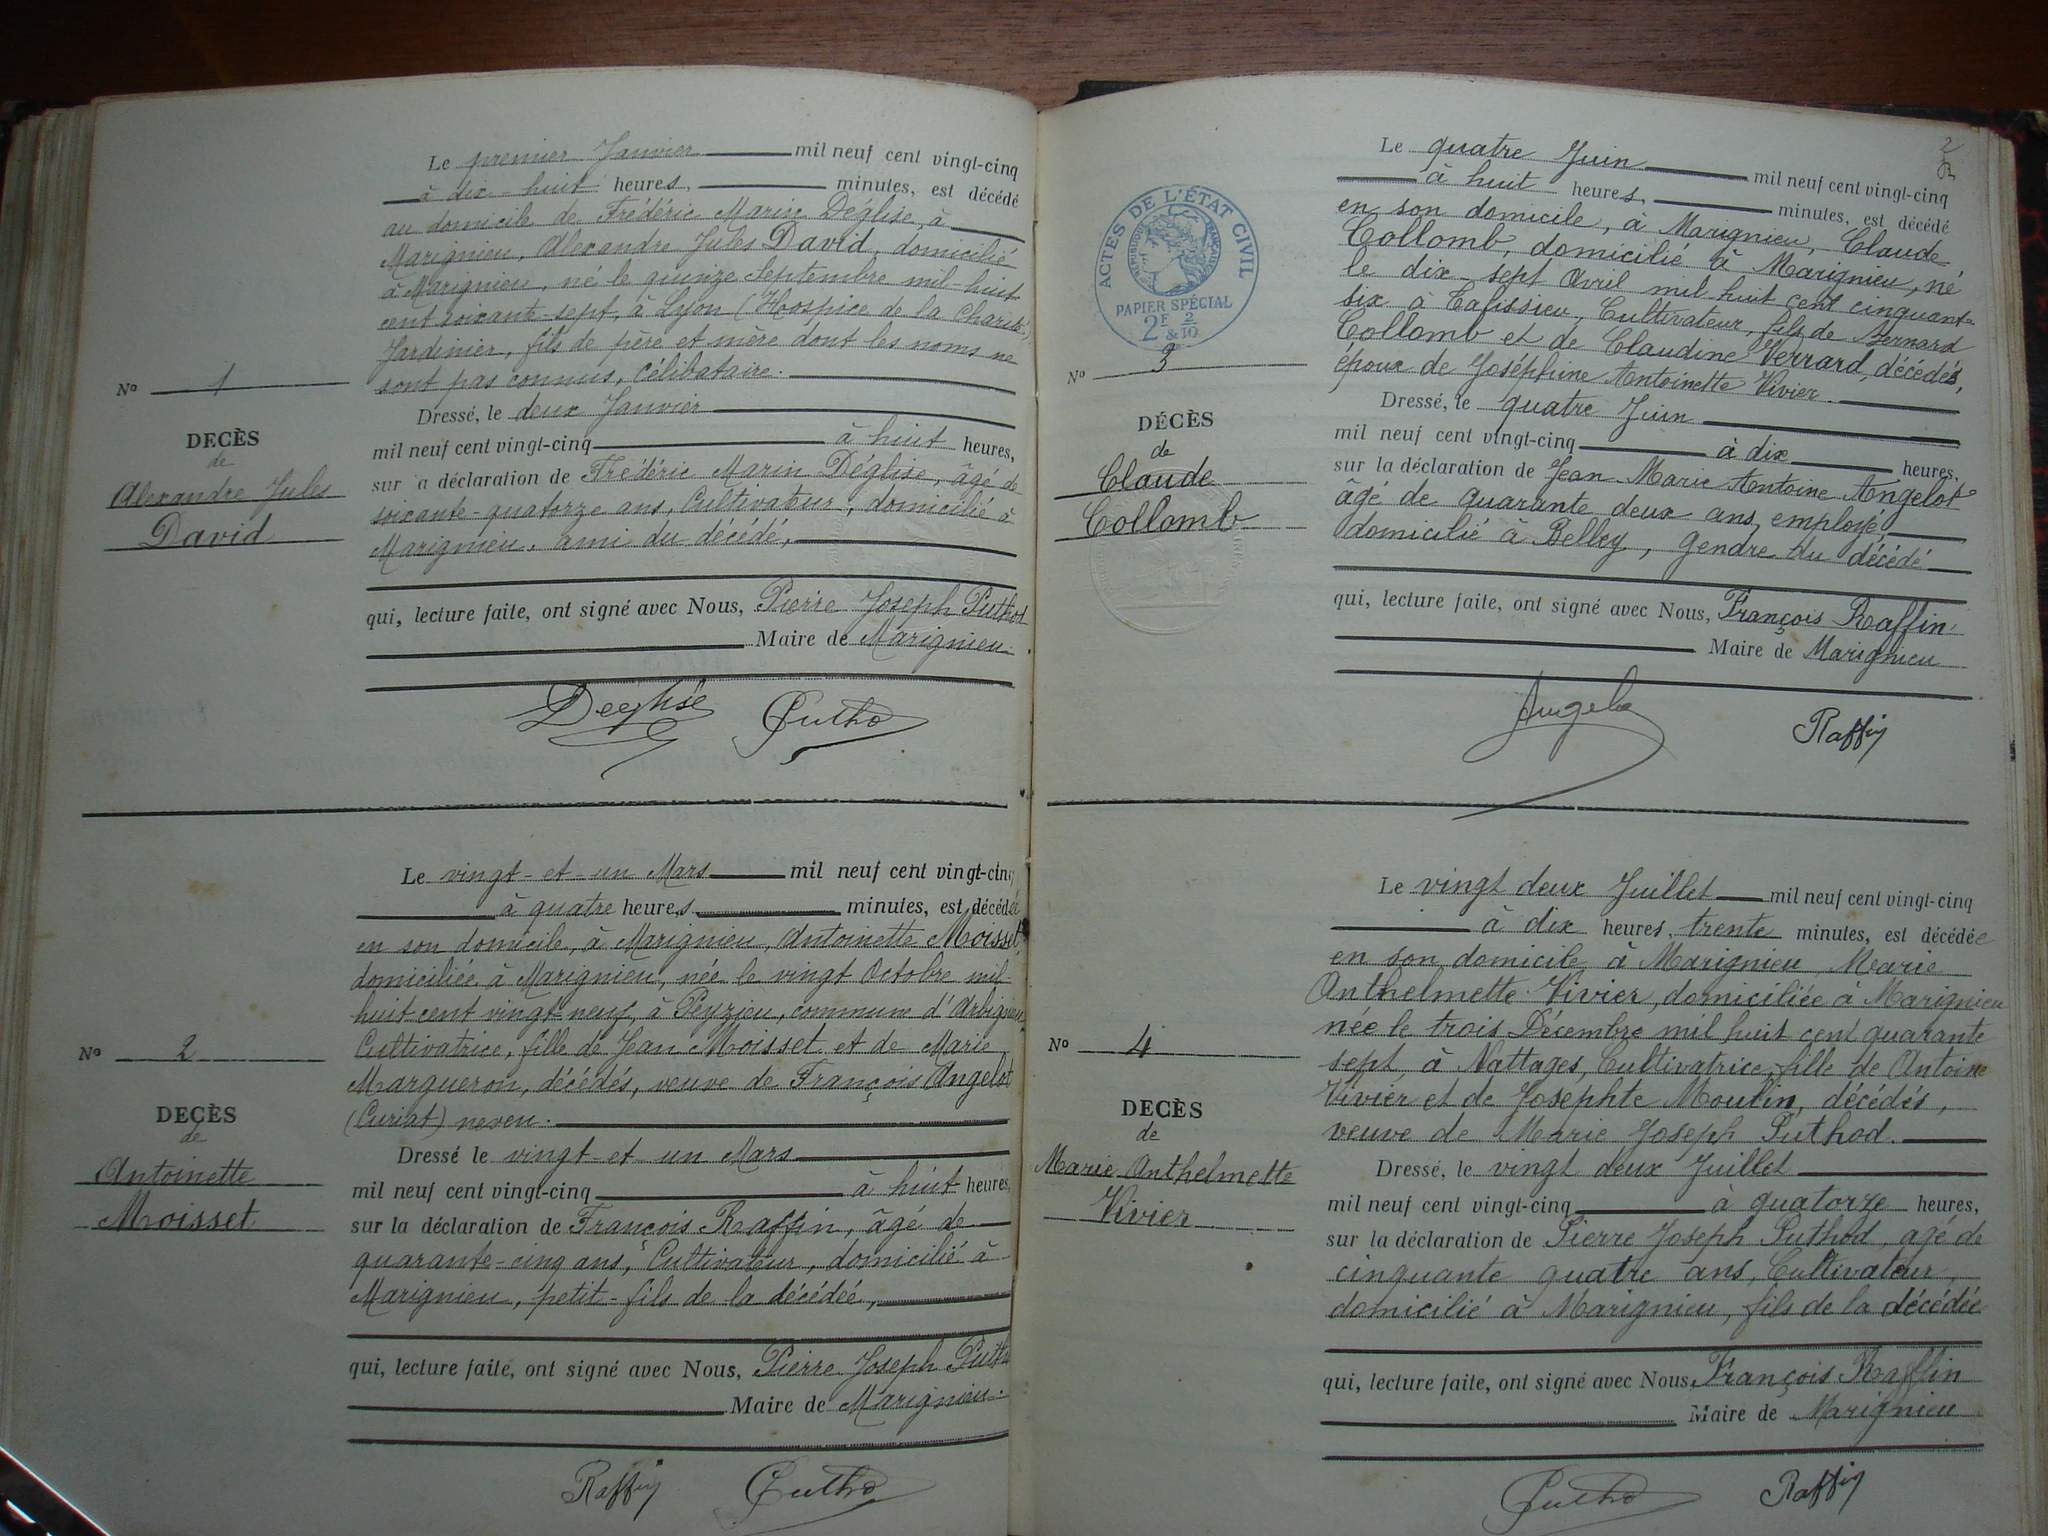 Le premier Janvier mil neuf cent vingt-cinq
à dix-huit heures, minutes, est décédé
au domicile de Frédéric Marin Déglise, à
Marignieu, Alexandre Jules David, domicilié
à Marignieu, né le quinze Septembre mil-huit
cent soixante-sept, à Lyon (Hospice de la Charité)
Jardinier, fils de père et mère dont les noms ne
sont pas connus, célibataire.
Nº 1
DECÈS
de
Alexandre Jules
David
Dressé, le deux Janvier
mil neuf cent vingt-cinq à huit heures,
sur a déclaration de Frédéric Marin Déglise, âgé de
soixante-quatorze ans, Cultivateur, domicilié à
Marignieu, ami du décédé,
qui, lecture faite, ont signé avec Nous, Pierre Joseph Puthod
Maire de Marignieu.
Déglise Putho
Le vingt-et-un Mars mil neuf cent vingt-cinq
à quatre heures minutes, est décédée
en son domicile, à Marignieu, Antoinette Moisset
domiciliée à Marignieu, née le vingt Octobre mil-
huit-cent vingt-neuf, à Peyzieu, commune d'Arbignieu
Cultivatrice, fille de Jean Moisset et de Marie
Margueron, décédés, veuve de François Angelot
(Curiat) neveu.
Nº 2
DECÈS
de
Antoinette
Moisset
Dressé le vingt-et-un Mars
mil neuf cent vingt-cinq à huit heures,
sur la déclaration de François Raffin, âgé de
quarante-cinq ans, Cultivateur, domicilié à
Marignieu, petit-fils de la décédée,
qui, lecture faite, ont signé avec Nous, Pierre Joseph Putho
Maire de Marignieu.
Raffin Putho
2
Le quatre Juin mil neuf cent vingt-cinq
à huit heures, minutes, est décédé
en son domicile, à Marignieu, Claude
Collomb, domicilié à Marignieu, né
le dix-sept Avril mil huit cent cinquante
six à Talissieu, Cultivateur, fils de Bernard
Collomb et de Claudine Verrard, décédés,
époux de Joséphine Antoinette Vivier.
ACTES DE L'ÉTAT CIVIL
RÉPUBLIQUE FRANÇAISE
PAPIER SPÉCIAL
2F & 2/10
Nº 3
DÉCÈS
de
Claude
Collomb
Dressé, le quatre Juin
mil neuf cent vingt-cinq à dix heures,
sur la déclaration de Jean Marie Antoine Angelot
âgé de quarante deux ans, employé,
domicilié à Belley, gendre du décédé
qui, lecture faite, ont signé avec Nous, François Raffin
Maire de Marignieu
Angelo Raffin
Le vingt deux Juillet mil neuf cent vingt-cinq
à dix heures, trente minutes, est décédée
en son domicile à Marignieu Marie
Anthelmette Vivier, domiciliée à Marignieu
née le trois Décembre mil huit cent quarante
sept à Nattages, Cultivatrice, fille de Antoine
Vivier et de Josephte Moulin, décédés,
veuve de Marie Joseph Puthod.
Nº 4
DECÈS
de
Marie Anthelmette
Vivier
Dressé, le vingt deux Juillet
mil neuf cent vingt-cinq à quatorze heures,
sur la déclaration de Pierre Joseph Puthod, agé de
cinquante quatre ans, Cultivateur,
domicilié à Marignieu, fils de la décédée
qui, lecture faite, ont signé avec Nous, François Raffin
Maire de Marignieu
Putho Raffin